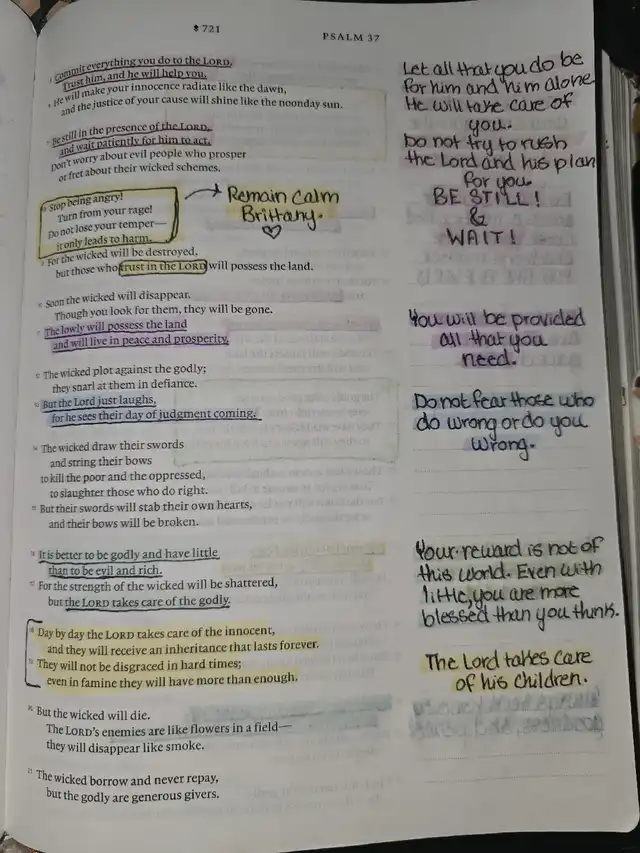 721
PSALM 37
5 Commit everything you do to the LORD.
Trust him, and he will help you.
6 He will make your innocence radiate like the dawn,
and the justice of your cause will shine like the noonday sun.
7 Be still in the presence of the LORD,
and wait patiently for him to act.
Don't worry about evil people who prosper
or fret about their wicked schemes.
8 Stop being angry!
Turn from your rage!
Do not lose your temper—
it only leads to harm.
9 For the wicked will be destroyed,
but those who trust in the LORD will possess the land.
10 Soon the wicked will disappear.
Though you look for them, they will be gone.
11 The lowly will possess the land
and will live in peace and prosperity.
12 The wicked plot against the godly;
they snarl at them in defiance.
13 But the Lord just laughs,
for he sees their day of judgment coming.
14 The wicked draw their swords
and string their bows
to kill the poor and the oppressed,
to slaughter those who do right.
15 But their swords will stab their own hearts,
and their bows will be broken.
16 It is better to be godly and have little
than to be evil and rich.
17 For the strength of the wicked will be shattered,
but the LORD takes care of the godly.
18 Day by day the LORD takes care of the innocent,
and they will receive an inheritance that lasts forever.
19 They will not be disgraced in hard times;
even in famine they will have more than enough.
20 But the wicked will die.
The LORD's enemies are like flowers in a field—
they will disappear like smoke.
21 The wicked borrow and never repay,
but the godly are generous givers.
Remain Calm
Brittany.
Let all that you do be
for him and him alone.
He will take care of
you.
Do not try to rush
the Lord and his plan
for you.
BE STILL!
&
WAIT!
You will be provided
all that you
need.
Do not fear those who
do wrong or do you
wrong.
Your reward is not of
this world. Even with
little, you are more
blessed than you think.
The Lord takes care
of his children.